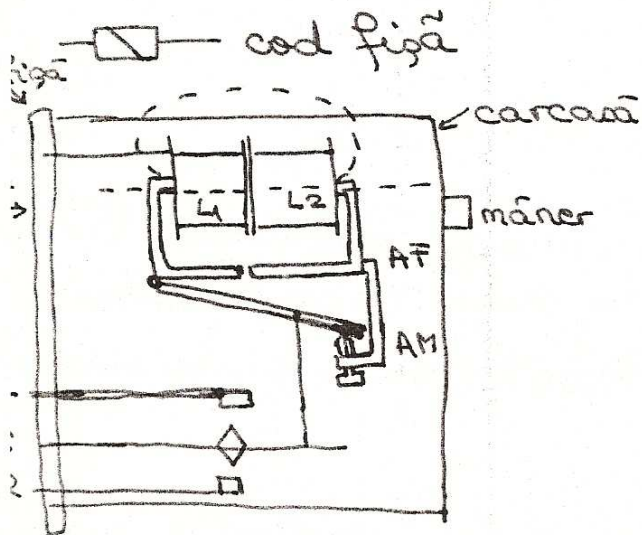 cod fișã
carcasã
L1
L2
mâner
AF
AM